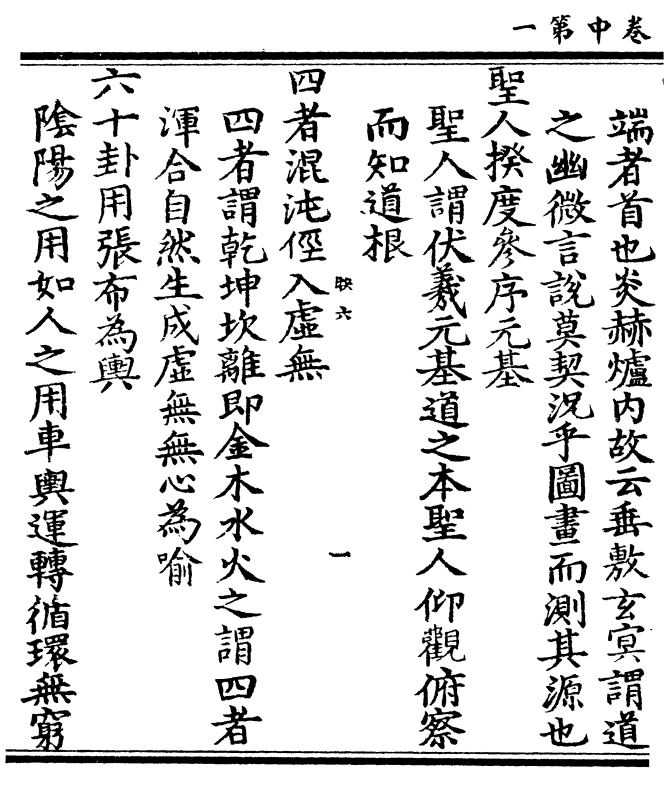 卷中第一
端者首也炎赫爐内故云垂敷玄冥謂道
之幽微言說莫契況乎圖畫而測其源也
聖人揆度參序元基
聖人謂伏羲元基道之本聖人仰觀俯察
而知道根
映六
一
四者混沌俓入虛無
四者謂乾坤坎離即金木水火之謂四者
渾合自然生成虛無無心為喻
六十卦用張布為輿
陰陽之用如人之用車輿運轉循環無窮